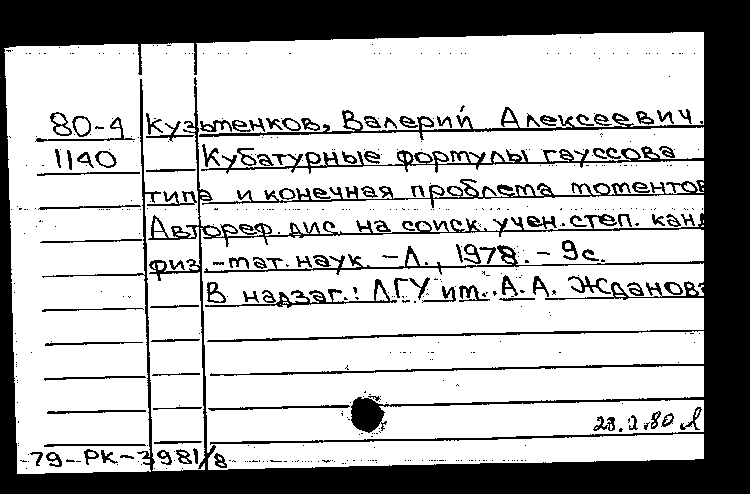 80-4 Кузьменков, Валерий Алексеевич.
1140 Кубатурные формулы гауссова
типа и конечная проблема моментов
Автореф. дис. на соиск. учен. степ. канд
физ.-мат. наук. - Л., 1978. - 9с.
В надзаг.: ЛГУ им. А.А. Жданова
28.2.80
79-РК-3981/8